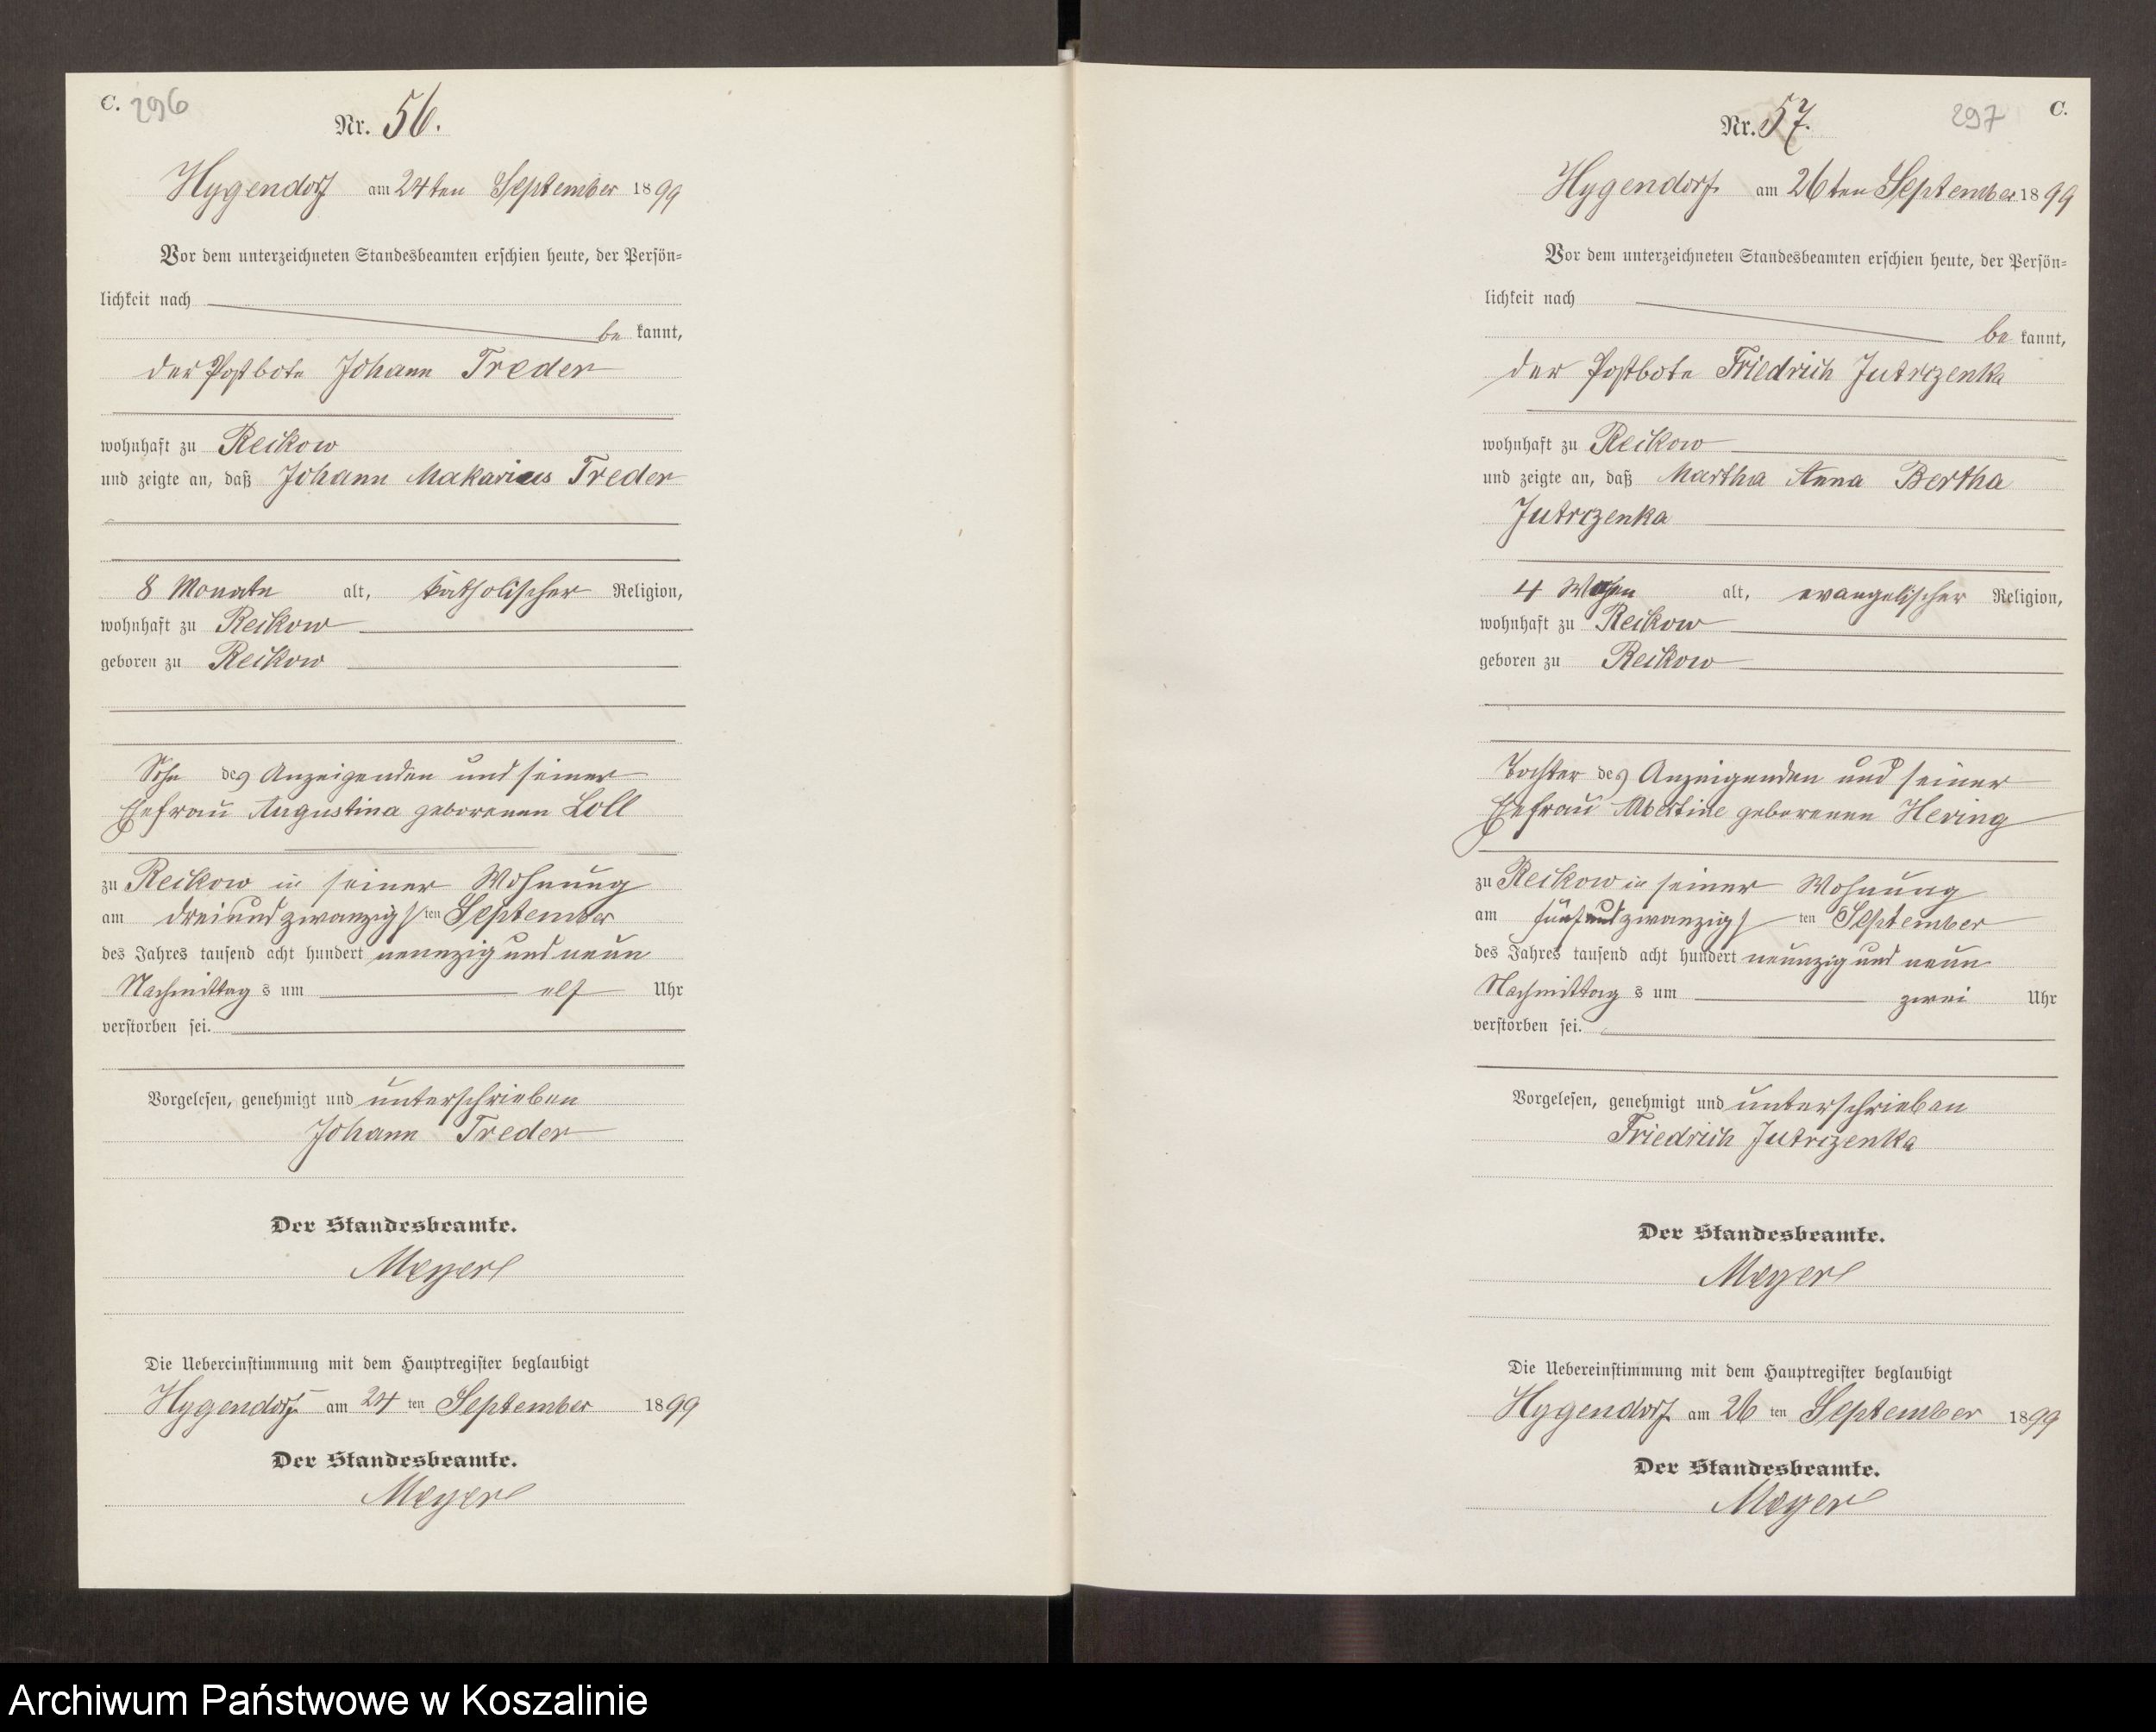 C. 296
Nr. 56.
Hygendorf am 24ten September 1899
Vor dem unterzeichneten Standesbeamten erschien heute, der Persön-
lichkeit nach
be kannt,
der Postbote Johann Treder
wohnhaft zu Reikow
und zeigte an, daß Johann Makarius Treder
8 Monate alt, katholischer Religion,
wohnhaft zu Reikow
geboren zu Reikow
Sohn des Anzeigenden und seiner
Ehefrau Augustina geborenen Loll
zu Reikow in seiner Wohnung
am dreiundzwanzigsten September
des Jahres tausend acht hundert neunzig und neun
Nachmittags um elf Uhr
verstorben sei.
Vorgelesen, genehmigt und unterschrieben
Johann Treder
Der Standesbeamte.
Meyer
Die Uebereinstimmung mit dem Hauptregister beglaubigt
Hygendorf am 24 ten September 1899
Der Standesbeamte.
Meyer
297 C.
Nr. 57.
Hygendorf am 26ten September 1899
Vor dem unterzeichneten Standesbeamten erschien heute, der Persön-
lichkeit nach
be kannt,
der Postbote Friedrich Jutrczenka
wohnhaft zu Reikow
und zeigte an, daß Martha Anna Bertha
Jutrczenka
4 Wochen alt, evangelischer Religion,
wohnhaft zu Reikow
geboren zu Reikow
Tochter des Anzeigenden und seiner
Ehefrau Albertine geborenen Hering
zu Reikow in seiner Wohnung
am fünfundzwanzigsten September
des Jahres tausend acht hundert neunzig und neun
Nachmittags um zwei Uhr
verstorben sei.
Vorgelesen, genehmigt und unterschrieben
Friedrich Jutrczenka
Der Standesbeamte.
Meyer
Die Uebereinstimmung mit dem Hauptregister beglaubigt
Hygendorf am 26 ten September 1899
Der Standesbeamte.
Meyer
Archiwum Państwowe w Koszalinie